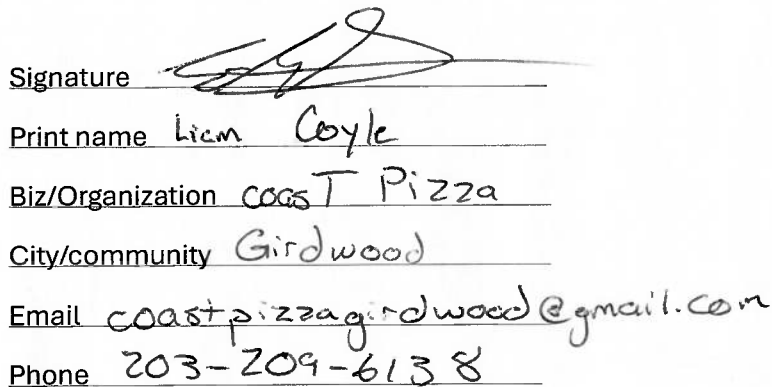 Signature
Print name Liam Coyle
Biz/Organization coasT Pizza
City/community Girdwood
Email coastpizzagirdwood@gmail.com
Phone 203-209-6138